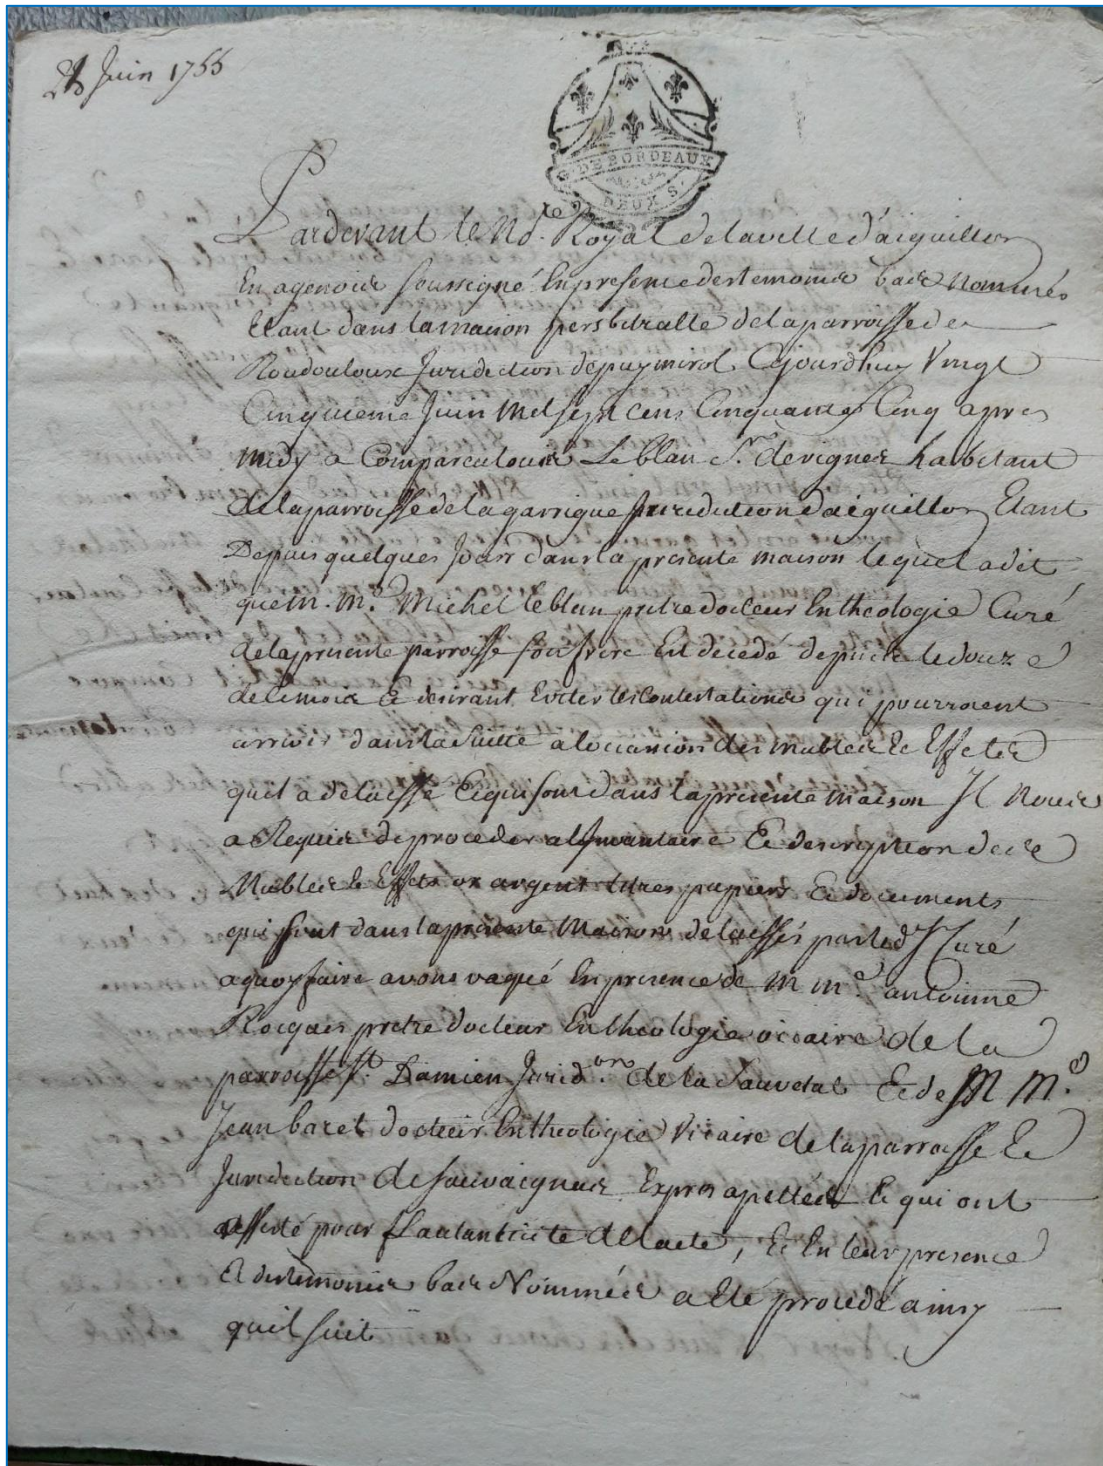 25 Juin 1755
G. DE BORDEAUX
DEUX S.
Pardevant le No.re Royal de la ville d'aiguillon
En agenois soussigné En presence des temoins bas Nommés
Etant dans la maison presbiteralle de la parroisse de
Roudouloux Juridiction de puymirol Cejourdhuy Vingt
Cinquieme Juin Mil sept cens Cinquante Cinq apres
midy a Comparu Leblan Sr. de vignes habitant
de la parroisse de la garrigue Juridiction d'aiguillon Etant
Depuis quelques Jours dans la presente maison lequel a dit
que M. Me. Michel leblan pretre docteur En theologie Curé
de la presente parroisse son frere Est decedé depuis le douze
de ce mois Et desirant Eviter les Contestations qui pourroient
arriver dans la suitte a loccasion des mubles Et Effets
quil a delaissé Et qui sont dans la presente maison Il Nous
a Requis de proceder a l'Inventaire Et description des
Mubles Et Effets or argent titres papiers Et documents
qui sont dans la presente Maison delaissés par led. Sr Curé
a quoy faire avons vaqué En presence de M Me. antoinne
Rocques pretre docteur En theologie vicaire de la
parroisse St. Damien Jurid.on de la Sauvetat Et de M Me.
Jean baret docteur En theologie Vicaire de la parroisse Et
Juridiction de sauvaignas Expres apellés Et qui ont
assisté pour l'autanticité de l'acte, Et En leur presence
Et des temoins bas Nommés a Eté procedé ainsy
quil suit